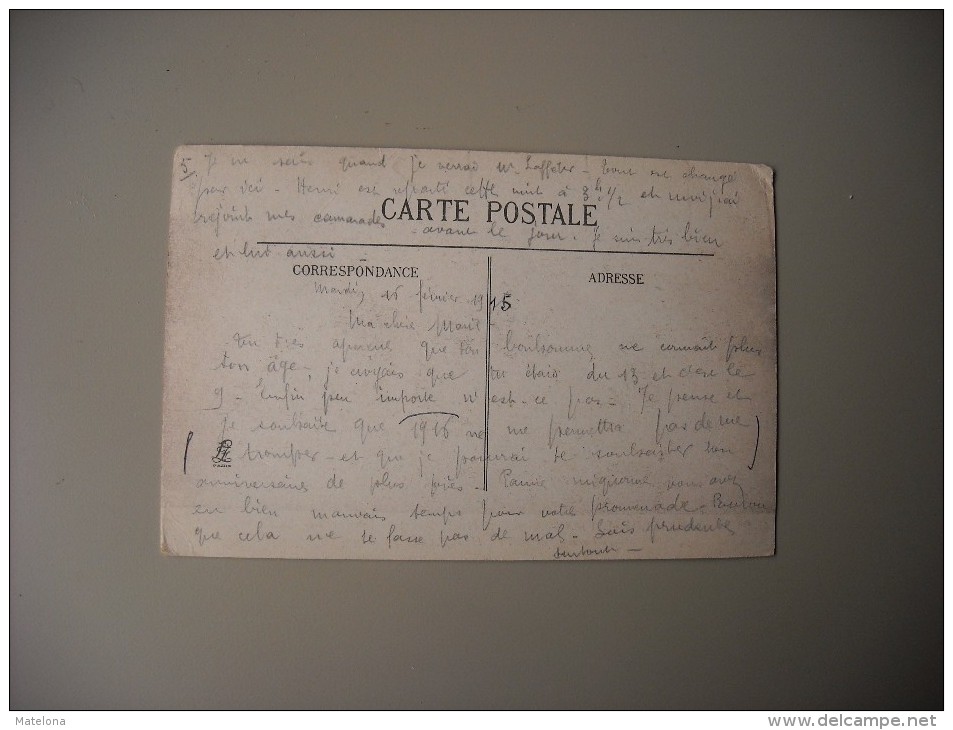 5
Je ne sais quand je verrai Mr - tout est changé
par ici - Henri est reparti cette nuit à 3 h 1/2 et moi j'ai
rejoint mes camarades
CARTE POSTALE
avant le jour. Je suis très bien
et lui aussi
CORRESPONDANCE
ADRESSE
Mardi, 16 février 1915
Ma chère
tu dis que ton ne connait plus
ton âge, je croyais que tu étais du 13 et c'est le
9 - Enfin peu importe n'est-ce pas - Je pense et
je souhaite que 1916 ne me permettra pas de me
tromper - et que je pourrai te souhaiter ton
anniversaire de plus près - mignonne vous avez
eu bien mauvais temps pour votre promenade -
que cela ne te fasse pas de mal - Sois prudente
surtout -
Matelona
www.delcampe.net